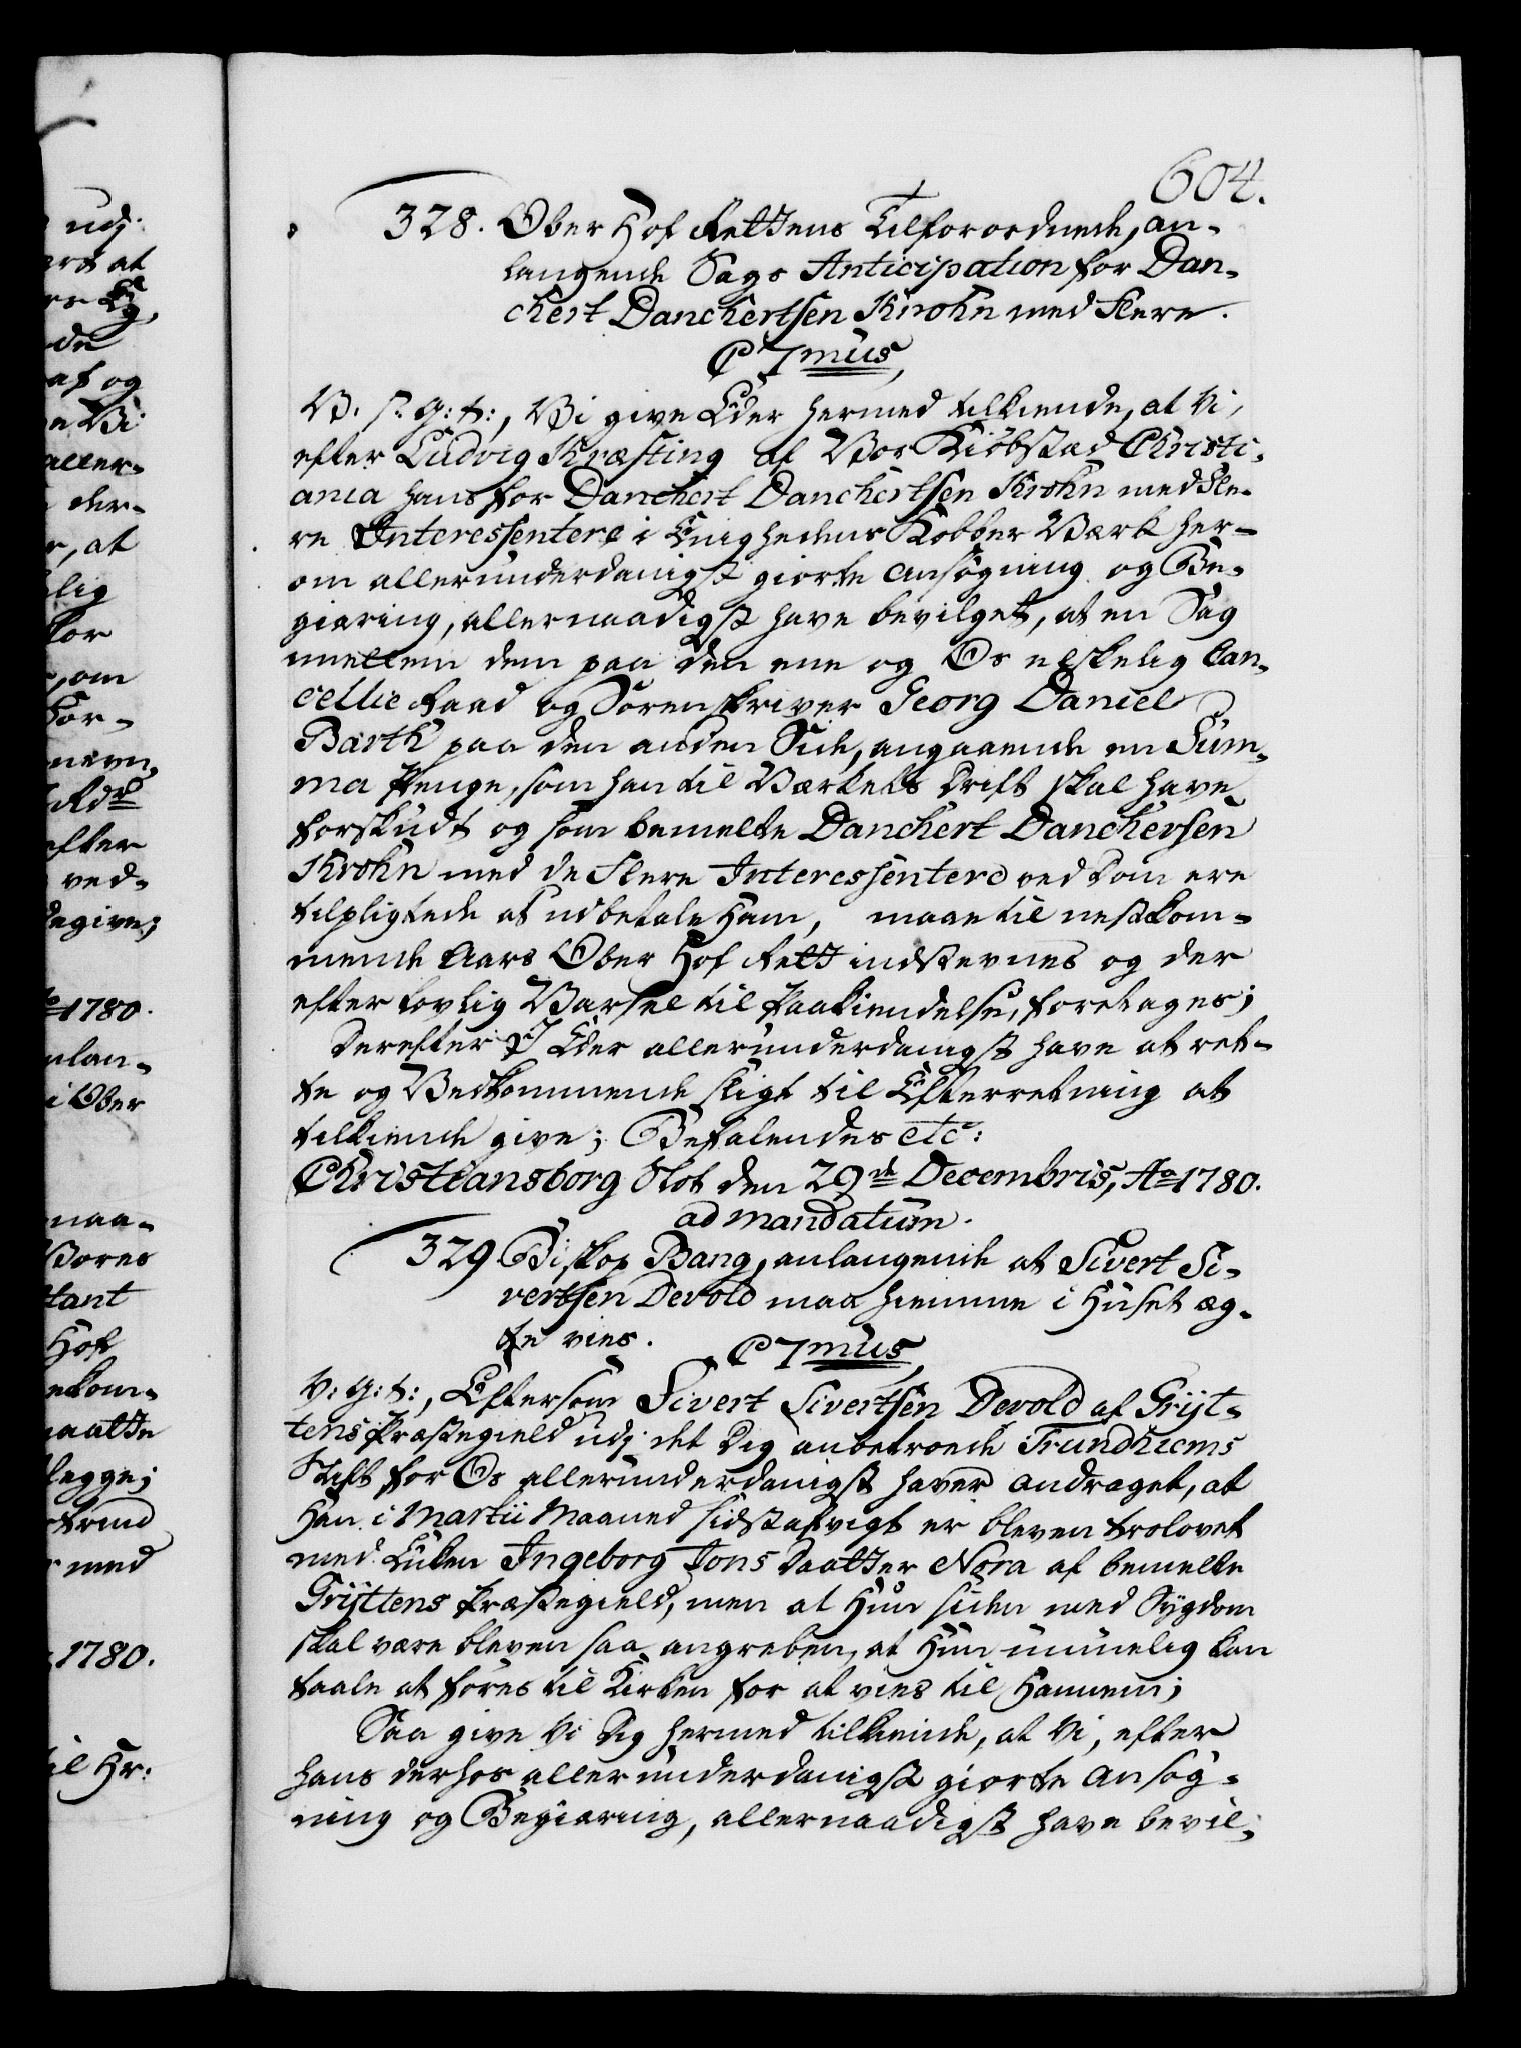 604.
328. Ober Hof Rettens Tilforordnede, an-
langende Sags Anticipation for Dan-
chert Danchertsen Krohn med Flere.
C 7mus,
V. s. G: t:, Vi give Eder hermed tilkiende, at Vi,
efter Ludvig Kræfting af Vor Kiöbstad Christi-
ania hans for Danchert Danchertsen Krohn med Fle-
re Interessentere i Enighedens Kobber Værk her-
om allerunderdanigst giorte Ansögning og Be-
giæring, allernaadigst have bevilget, at en Sag
mellem dem paa den ene og Os elskelig Can-
cellie Raad og Sorenskriver Georg Daniel
Barth paa den anden Side, angaaende en Sum-
ma Penge, som han til Værkets Drift skal have
forskudt og som bemelte Danchert Danchersen
Krohn med de Flere Interessentere ved Dom ere
tilpligtede at udbetale Ham, maae til nestkom-
mende Aars Ober Hof Rett indstevnes og der
efter lovlig Varsel til Paakiendelse, foretages;
Derefter I Eder allerunderdanigst have at ret-
te og Vedkommende sligt til Efterretning at
tilkiende give; Befalendes etc:
Christiansborg Slot den 29de Decembris, Ao 1780.
ad mandatum.
329 Biskop Bang, anlangende at Sivert Si-
vertsen Devold maa hiemme i Huset æg-
te vies. C 7mus,
V: G: t:, Eftersom Sivert Sivertsen Devold af Gryt-
tens Præstegield udj det Dig anbetroede Trundhiems
Stift for Os allerunderdanigst haver andraget, at
Han i Martii Maaned sidstafvigt er bleven trolovet
med Enken Ingeborg Jons Daatter Nora af bemelte
Gryttens Præstegield, men at Hun siden med Sygdom
skal være bleven saa angreben, at Hun umuelig kan
taale at föres til Kirken for at vies til Hannem;
Saa give Vi Dig hermed tilkiende, at Vi, efter
hans derhos allerunderdanigst giorte Ansög-
ning og Begiæring, allernaadigst have bevil-